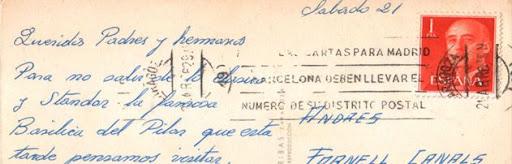 Sabado 21
Queridos Padres y hermanos
Para no salir de lo clasico
y Standar la famosa
Basilica del Pilar que esta
tarde pensamos visitar.
CARTAS PARA MADRID
BARCELONA DEBEN LLEVAR EL
NUMERO DE SU DISTRITO POSTAL
1
ESPAÑA
ANDRES
FORNELL CANALS